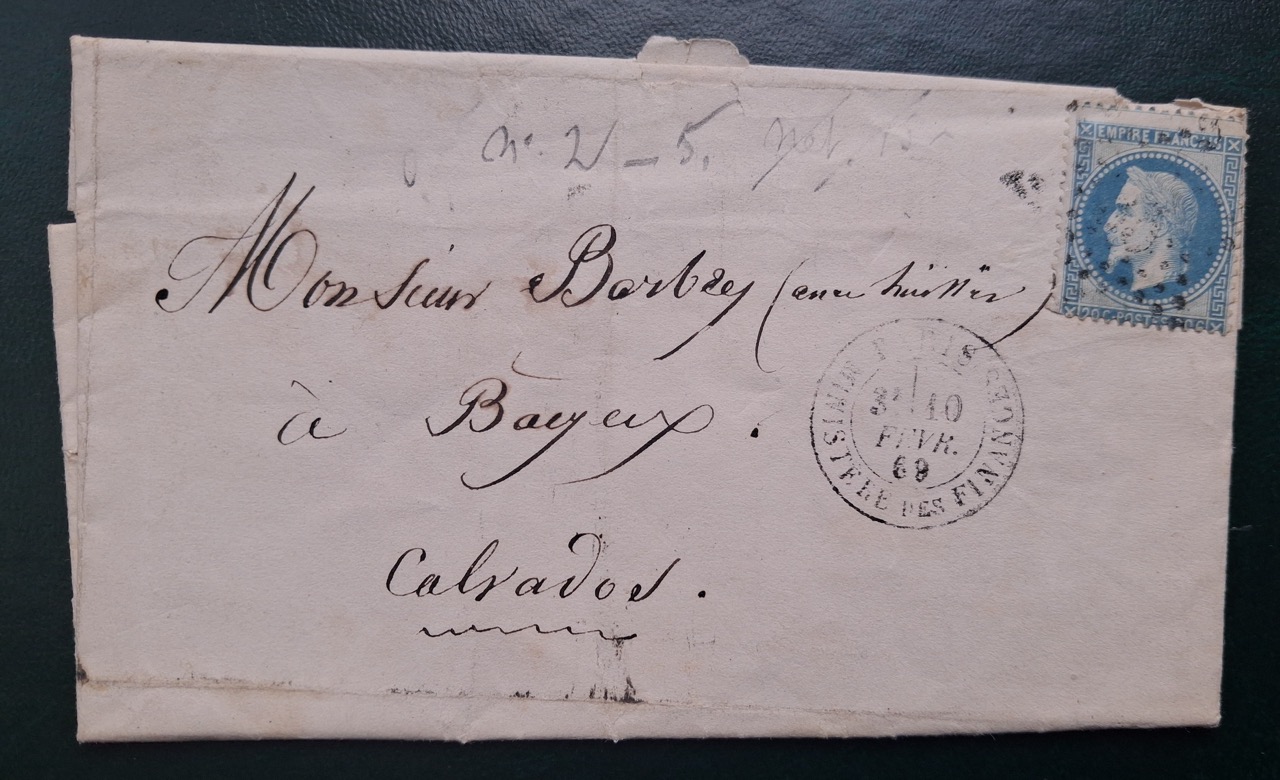 n° 2 - 5.
EMPIRE FRANC
20c POSTES 20c
Monsieur Barbey (anc huissier)
à Bayeux.
Calvados.
PARIS
3E 10
FEVR.
69
MINISTERE DES FINANCES